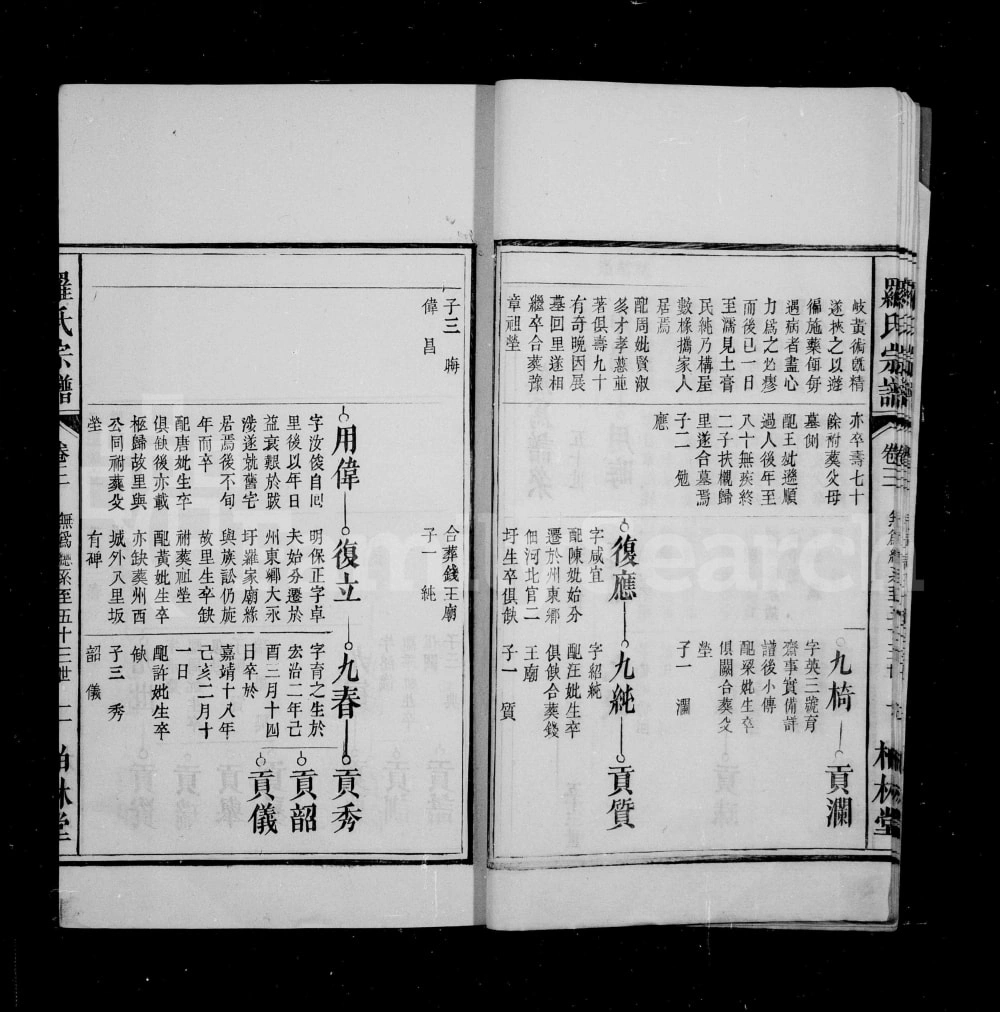 羅氏宗譜
卷二
柏林堂
岐黃術既精
遂挾之以遊
徧施藥餌每
遇病者盡心
力爲之必瘳
而後已一日
至濡見土膏
民純乃構屋
數椽攜家人
居焉
配周妣賢淑
多才孝慈並
著俱壽九十
有奇晚因展
墓回里遂相
繼卒合葬豫
章祖塋
亦卒壽七十
餘附葬父母
墓側
配王妣遜順
過人後年至
八十無疾終
二子扶櫬歸
里遂合墓焉
子二 勉
應
復應
字咸宜
配陳妣始分
遷於州東鄉
佃河北官二
圩生卒俱缺
九椅
字英三號育
齋事實備詳
譜後小傳
配梁妣生卒
俱闕合葬父
塋
子一 瀾
九純
字紹純
配汪妣生卒
俱缺合葬錢
王廟
子一 質
貢瀾
貢質
子三 晦
偉 昌
用偉
字汝俊自回
里後以年日
益衰艱於跋
涉遂就舊宅
居焉後不旬
年而卒
配唐妣生卒
俱缺後亦載
柩歸故里與
公同祔葬父
塋
合葬錢王廟
子一 純
復立
明保正字卓
夫始分遷於
州東鄉大永
圩羅家廟緣
與族訟仍旋
故里生卒缺
祔葬祖塋
配黃妣生卒
亦缺葬州西
城外八里坂
有碑
九春
字育之生於
宏治二年己
酉三月十四
日卒於
嘉靖十八年
己亥二月十
一日
配許妣生卒
缺
子三 秀
韶 儀
貢秀
貢韶
貢儀
羅氏宗譜
卷二
無爲總系至五十三世
二
柏林堂